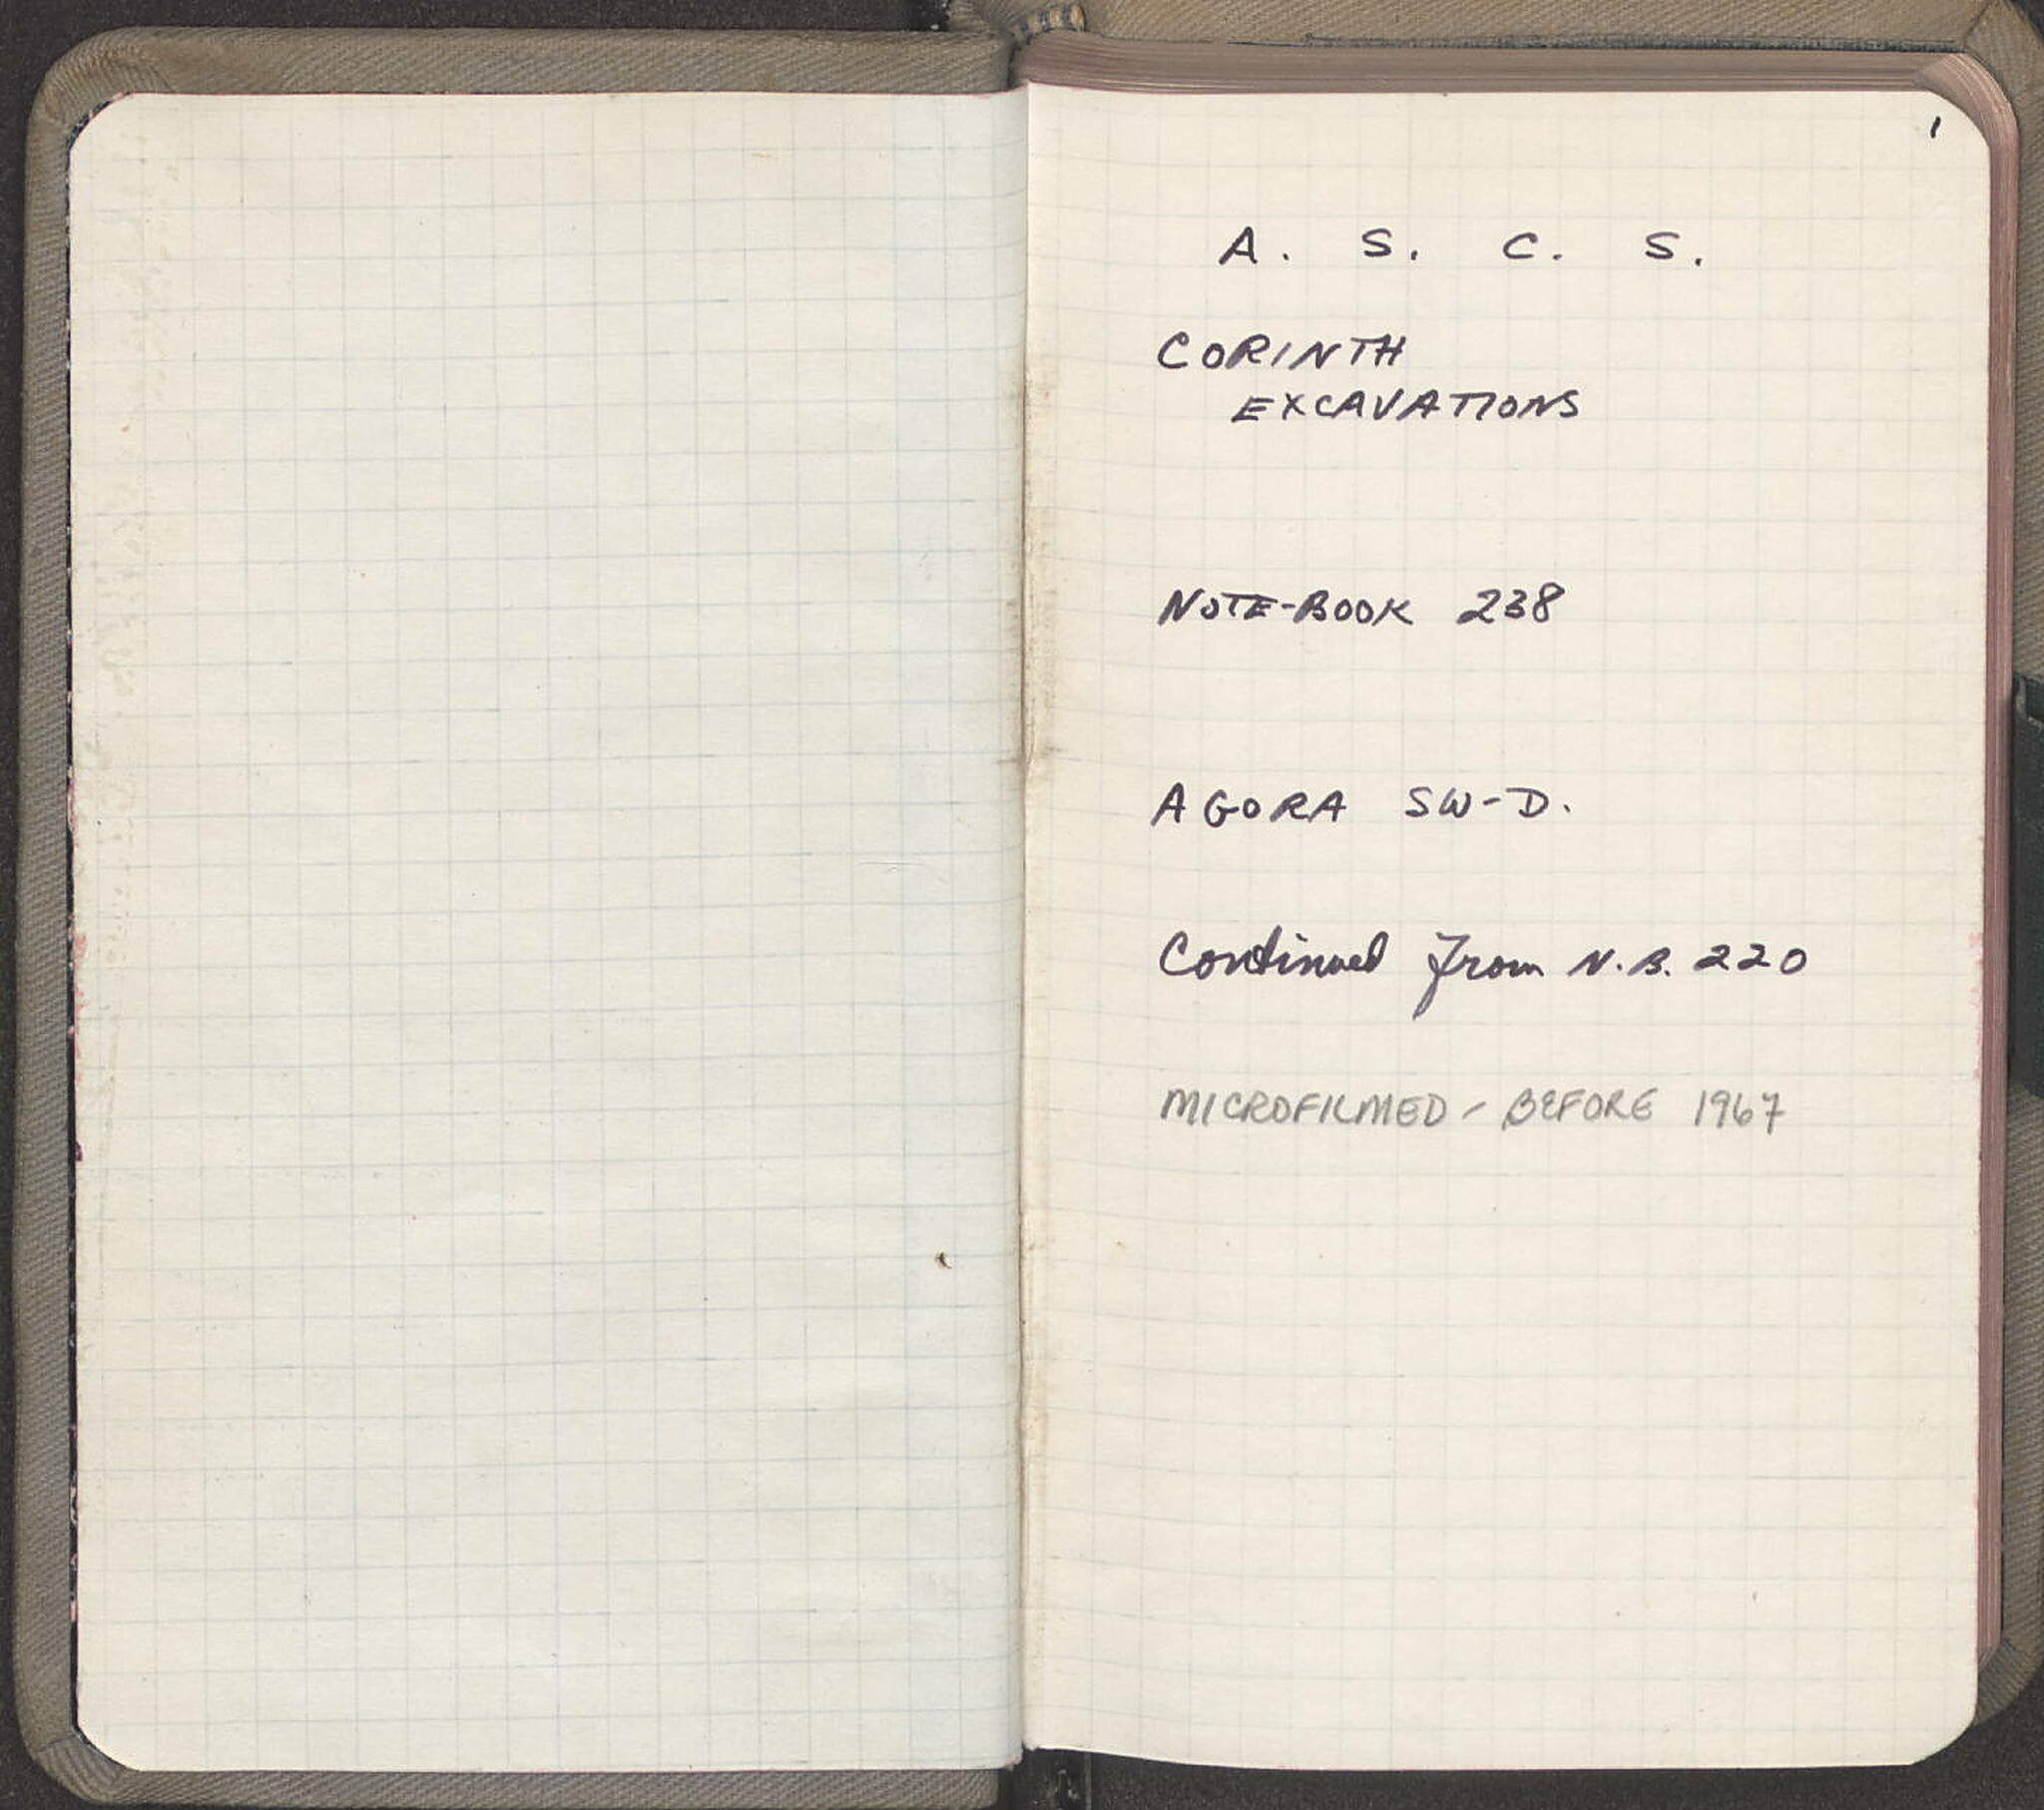 1
A. S. C. S.
CORINTH
EXCAVATIONS
NOTE-BOOK 238
AGORA SW-D.
Continued from N.B. 220
MICROFILMED - BEFORE 1967